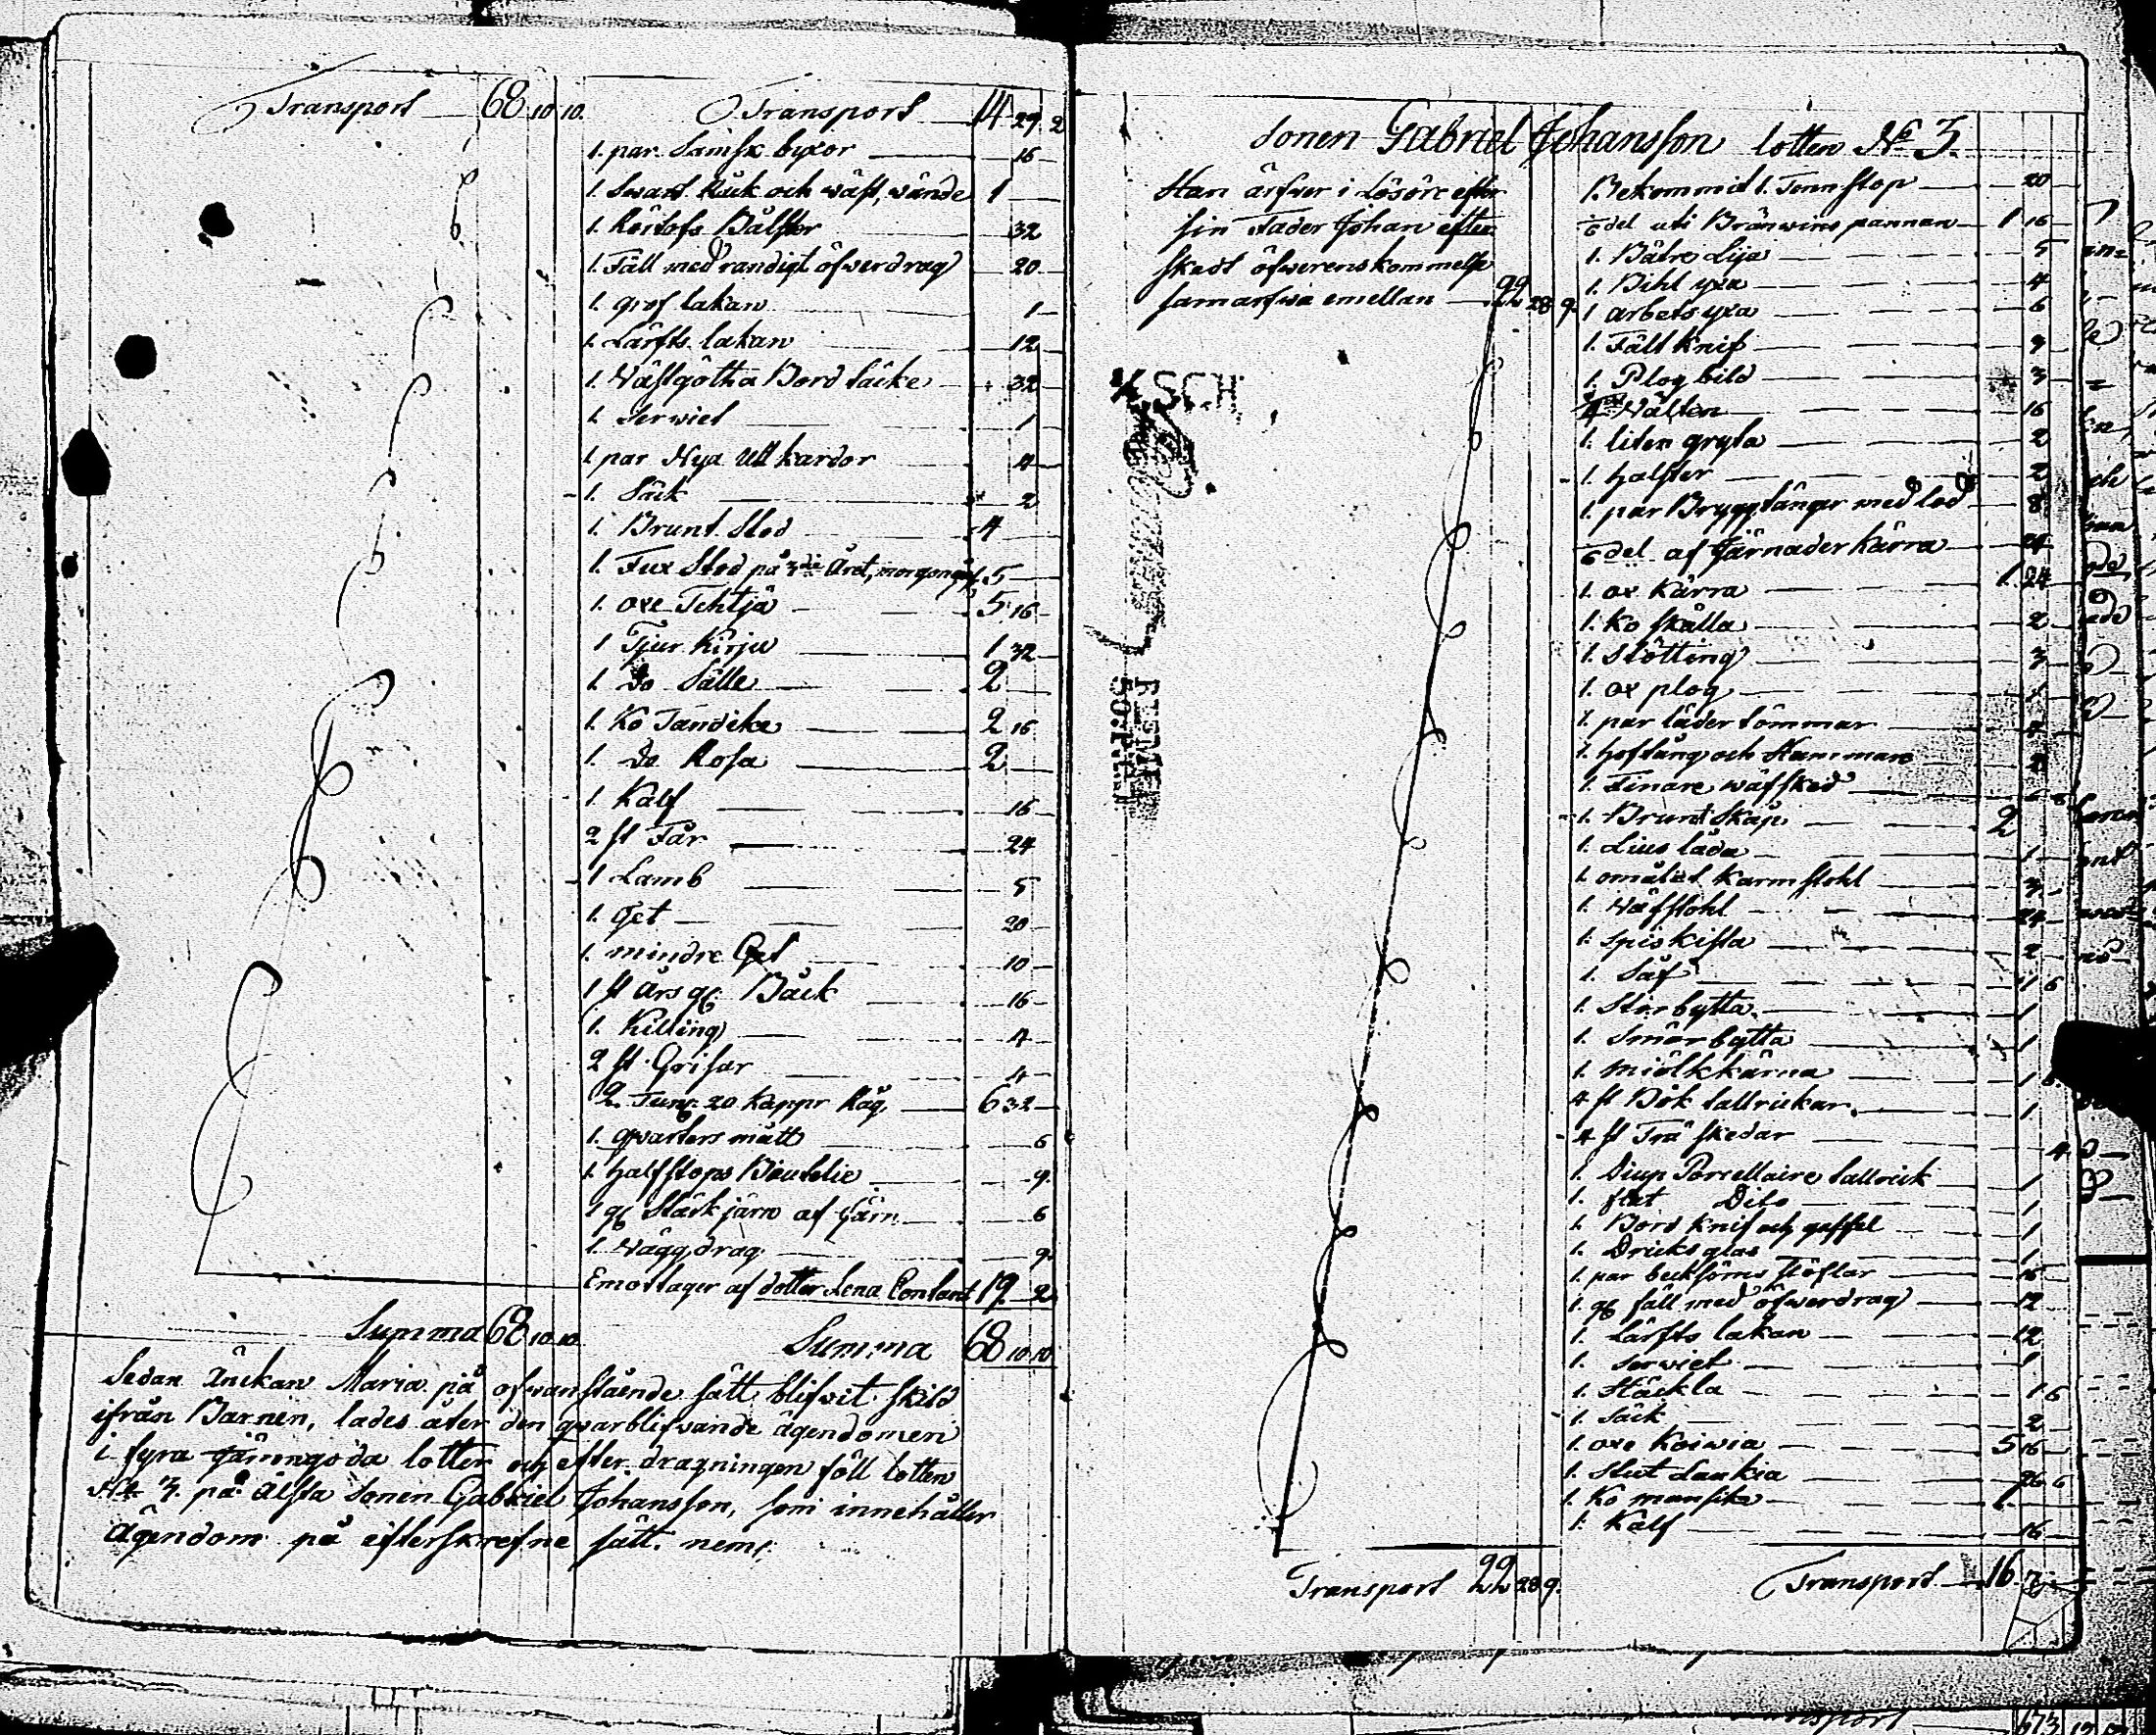 Transport 68 10 10.
Transport 14 29 2
1. par Sämsk byxor 16
1. Swart Råck och wäst, wände 1
1. Bålster 32
1. Fäll med randigt öfwerdrag 20
1. grof lakan 1
1. Lärfts lakan 12
1. Wästgötha Bord täcke 32
1. Serwiet 1
1. par Nya Ull kardor 4
1. Säck 2
1. Brunt Stod 4
1. Fux Stod på 3die Året, morgongåf. 5
1. oxe Tehtjä 5 16
1 Tjur Kirju 1 32
1. Do Sälle 2
1. Ko Tändike 2 16
1. Do Rosa 2
1. Kalf 16
2 st Får 24
1 Lamb 5
1. Get 20
1. mindre Get 10
1 st Års gl. Båck 16
1. Killing 4
2 st Grisar 4
2. Tunr. 20 Kappr Råg. 6 32
1. qvarters mått 6
1. halfstops Boutelie 9.
1 gl Stärkjärn af Järn 6
1. Wäggdrag 9.
Emottager af dotter Lena Contant 19. 2.
Summa 68 10 10.
Summa 68 10 10
Sedan Änckan Maria på ofwanstående sätt blifwit skild
ifrån Barnen, lades åter den qvarblifwande ägendomen
i fyra jämngoda lotter och efter dragningen föll lotten
No 3. på Älsta Sonen Gabriel Johansson, som innehåller
Ägendom på efterskrefne sätt. neml.
Sonen Gabriel Johansson lotten No 3.
Han ärfver i Lösöre efter
sin Fader Johan efter
skedt öfwerenskommelse
samarfwa emellan 22 28 9.
Bekommit 1. Tennstop 20
del uti Bränwins pannan 1 16
1. Bätre Lija 5
1. Bihl yxa 4
1 arbets yxa 6
1. Fällknif 9
1. Plogbild 3
Wälten 16
1. liten gryta 2
1. halfter 2
1. par Bryggtänger med lod 8
del af Järnader Kärra 24
1. ox Kärra 1 24
1. Ko skälla 2
1. Stötting 3
1. ox plog 1
1. par läder tömmar
1. hoftång och Hammare
1. Finare wäfsked
1. Brunt Skåp 2
1. Lius låda 1
1. omålat Karmstohl 3
1. Wäfstohl 24
1. spis kista 2
1. Såf 1 6
1. Störbytta 1
1. Smör bytta 1
1. miölkkärna 1
4 st Bök tallrickar 1
4 st Trä skedar 4
1. Diup Porcellaine tallrick 1
1. flat Dito 1
1. Bord knif och gaffel 1
1. Dricks glas 1
1. par becksöms stöflar 16
1. gl fäll med öfwerdrag 12
1. Lärfts lakan 12
1. Serwiet 1
1. Häckla 1 6
1. Säck 2
1. oxe Koiwia 5 16
1. Stut Laukia 26 6
1. Ko mansike
1. Kalf 16
Transport 22 28 9.
Transport 16 7